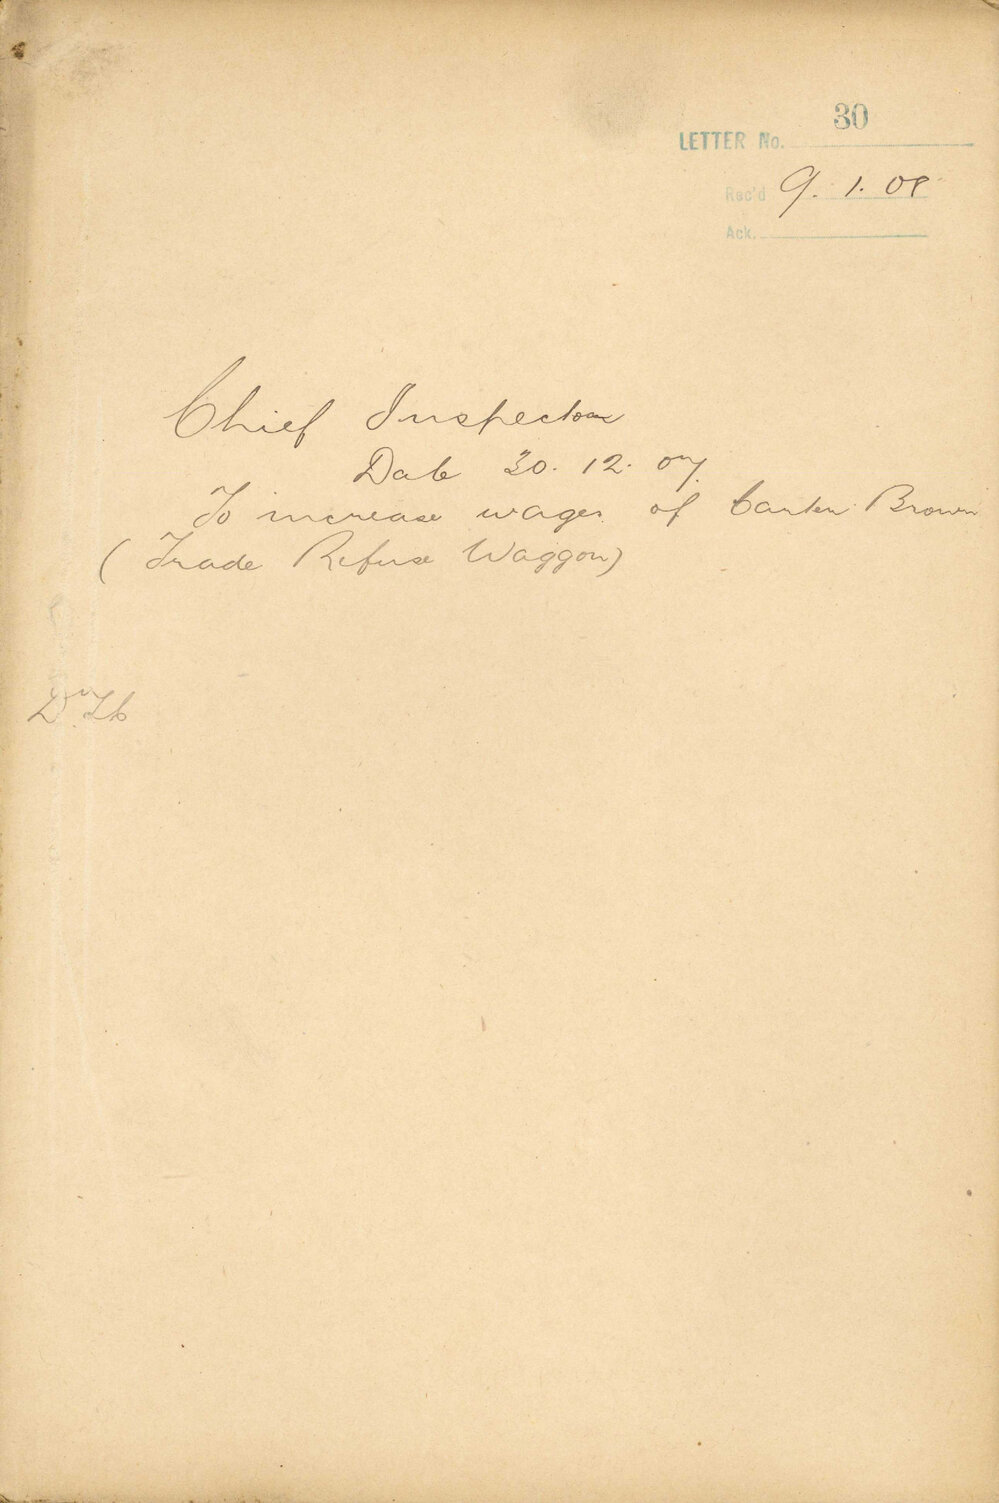 LETTER No. 30
Rec'd 9. 1. 08
Ack.
Chief Inspector
Date 30. 12. 07
To increase wages of Carter Brown
(Trade Refuse Waggon)